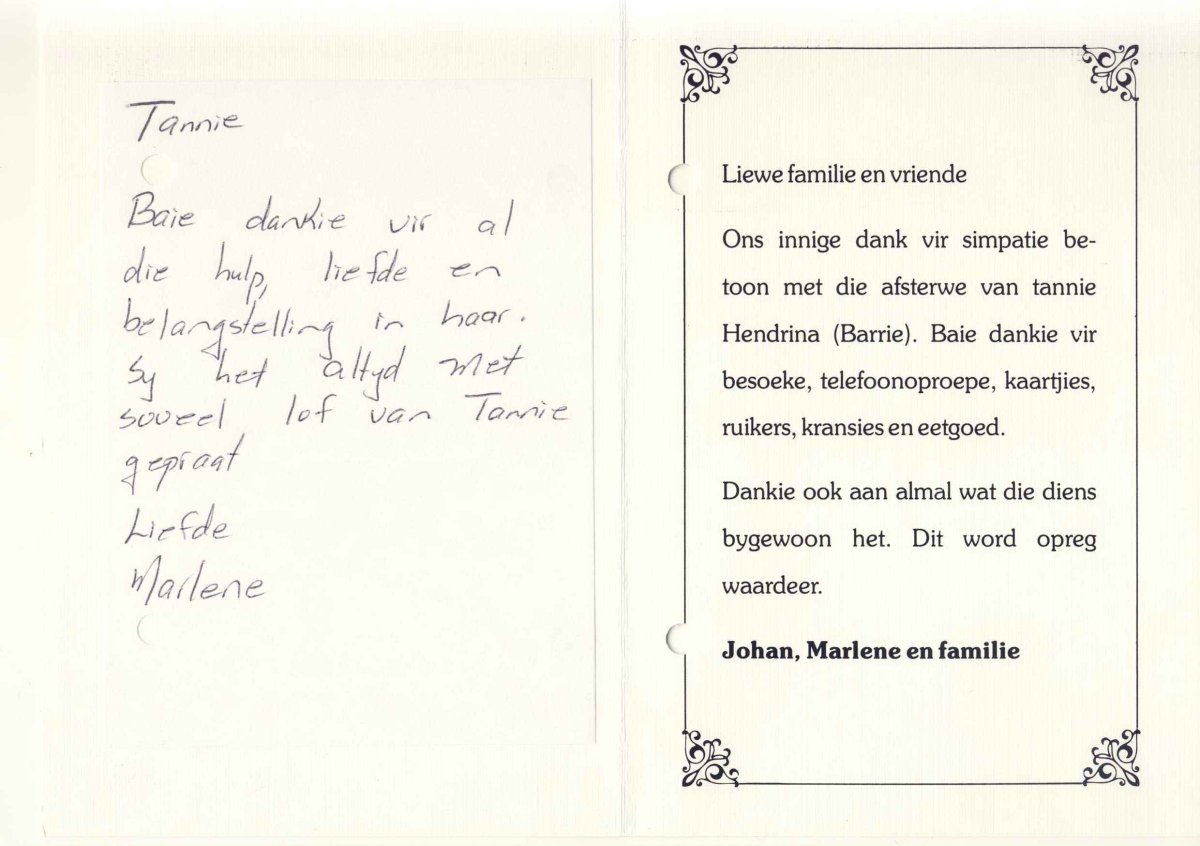 Tannie
Baie dankie vir al
die hulp, liefde en
belangstelling in haar.
Sy het altyd met
soveel lof van Tannie
gepraat
Liefde
Marlene
Liewe familie en vriende
Ons innige dank vir simpatie be-
toon met die afsterwe van tannie
Hendrina (Barrie). Baie dankie vir
besoeke, telefoonoproepe, kaartjies,
ruikers, kransies en eetgoed.
Dankie ook aan almal wat die diens
bygewoon het. Dit word opreg
waardeer.
Johan, Marlene en familie